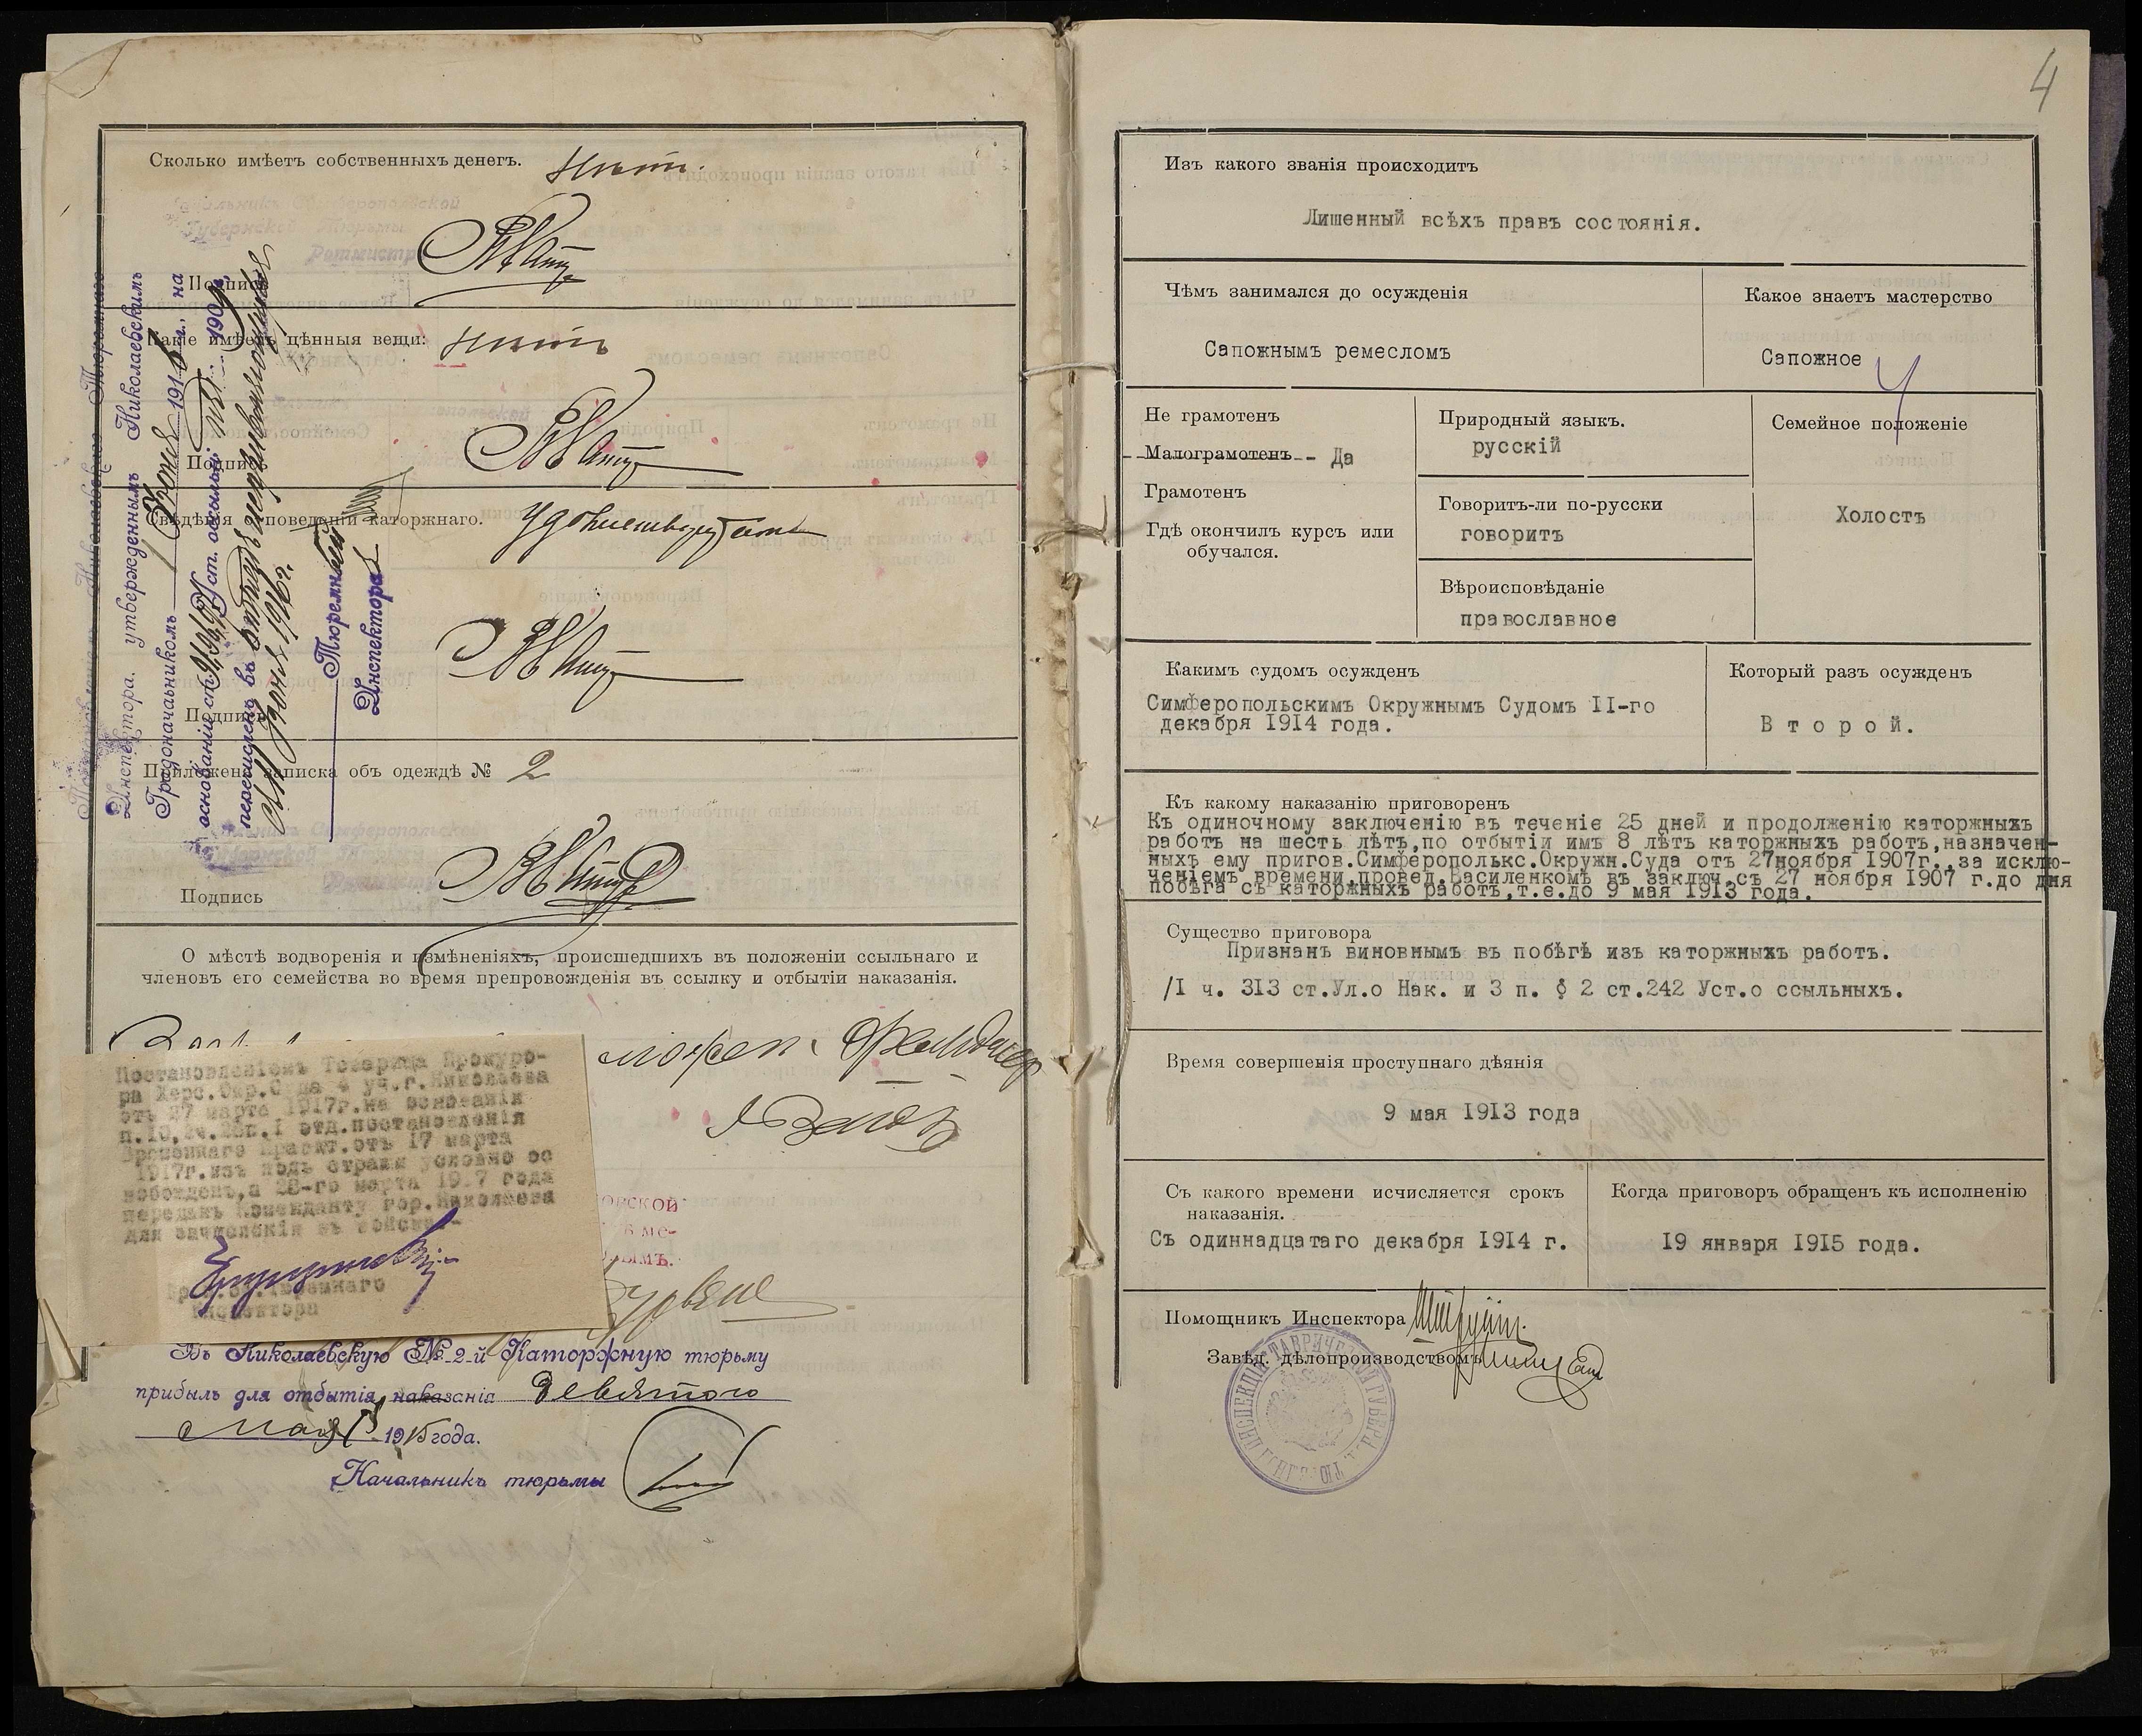 Сколько имѣетъ собственныхъ денегъ. Нѣтъ.
Подпись
Какіе имѣетъ цѣнныя вещи: Нѣтъ
Подпись
Свѣдѣнія о поведеніи каторжнаго.
Подпись
Приложена записка объ одеждѣ № 2
Подпись
Инспектора, утвержденнымъ Николаевскимъ
Градоначальникомъ 1916 г., на
основаніи ст. Уст. о ссыльн. изд. 1909 г.,
перечисленъ въ
Іюня 1916 г.
Тюремный
Инспекторъ
О мѣстѣ водворенія и измѣненіяхъ, происшедшихъ въ положеніи ссыльнаго и
членовъ его семейства во время препровожденія въ ссылку и отбытіи наказанія.
Постановленіемъ Товарища Прокуро-
ра Херс.Окр.Суда 4 уч.г.Николаева
отъ 27 марта 1917г.на основаніи
отд.постановленія
Временнаго Правит.отъ 17 марта
1917г.изъ подъ стражи условно ос
вобожденъ,а 28-го марта 1917 года
переданъ Коменданту гор.Николаева
для зачисленія въ войска.-
Тюремнаго
Инспектора
Въ Николаевскую № 2-й Каторжную тюрьму
прибылъ для отбытія наказанія Девятого
Мая 1915 года.
Начальникъ тюрьмы
4
Изъ какого званія происходитъ
Лишенный всѣхъ правъ состоянія.
Чѣмъ занимался до осужденія
Сапожнымъ ремесломъ
Какое знаетъ мастерство
Сапожное
Не грамотенъ
Малограмотенъ -- Да
Грамотенъ
Гдѣ окончилъ курсъ или
обучался.
Природный языкъ.
русскій
Говоритъ-ли по-русски
говоритъ
Вѣроисповѣданіе
православное
Семейное положеніе
Холостъ
Какимъ судомъ осужденъ
Симферопольскимъ Окружнымъ Судомъ II-го
декабря 1914 года.
Который разъ осужденъ
Второй.
Къ какому наказанію приговоренъ
Къ одиночному заключенію въ теченіе 25 дней и продолженію каторжныхъ
работъ на шесть лѣтъ,по отбытіи имъ 8 лѣтъ каторжныхъ работъ,назначен-
ныхъ ему пригов.Симферополькс.Окружн.Суда отъ 27ноября 1907г.,за исклю-
ченіемъ времени,провед.Василенкомъ въ заключ.съ 27 ноября 1907 г.до дня
побѣга съ каторжныхъ работъ,т.е.до 9 мая 1913 года.
Существо приговора
Признанъ виновнымъ въ побѣгѣ изъ каторжныхъ работъ.
/I ч. 313 ст.Ул.о Нак. и 3 п. § 2 ст.242 Уст.о ссыльныхъ.
Время совершенія проступнаго дѣянія
9 мая 1913 года
Съ какого времени исчисляется срокъ
наказанія.
Съ одиннадцатаго декабря 1914 г.
Когда приговоръ обращенъ къ исполненію
19 января 1915 года.
Помощникъ Инспектора
Завѣд. дѣлопроизводствомъ